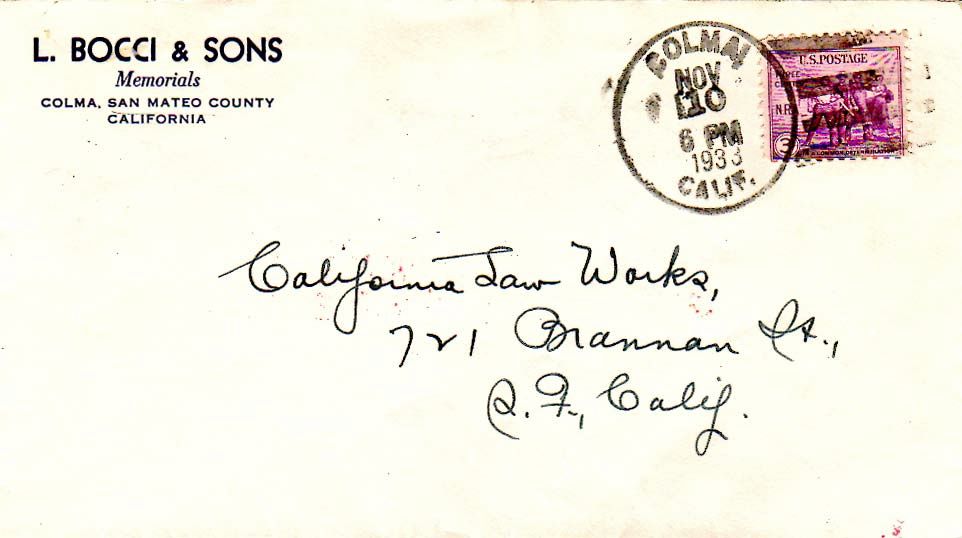 L. BOCCI & SONS
Memorials
COLMA, SAN MATEO COUNTY
CALIFORNIA
COLMA
NOV
10
6 PM
1933
CALIF.
U.S. POSTAGE
3
California Saw Works,
721 Brannan St.,
S. F., Calif.